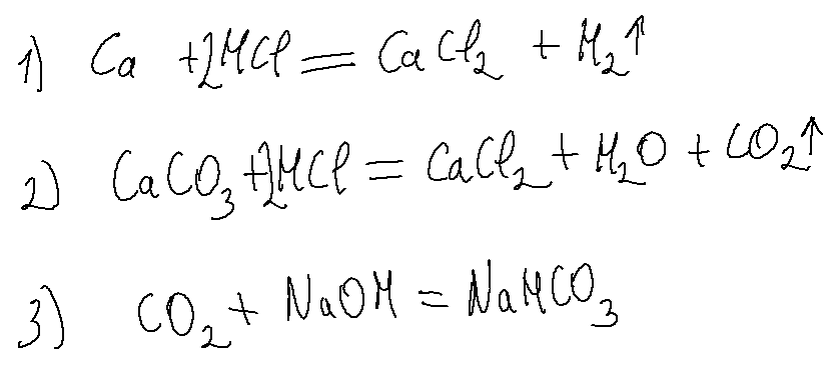 1) Ca + 2HCl = CaCl₂ + H₂↑
2) CaCO₃ + 2HCl = CaCl₂ + H₂O + CO₂↑
3) CO₂ + NaOH = NaHCO₃